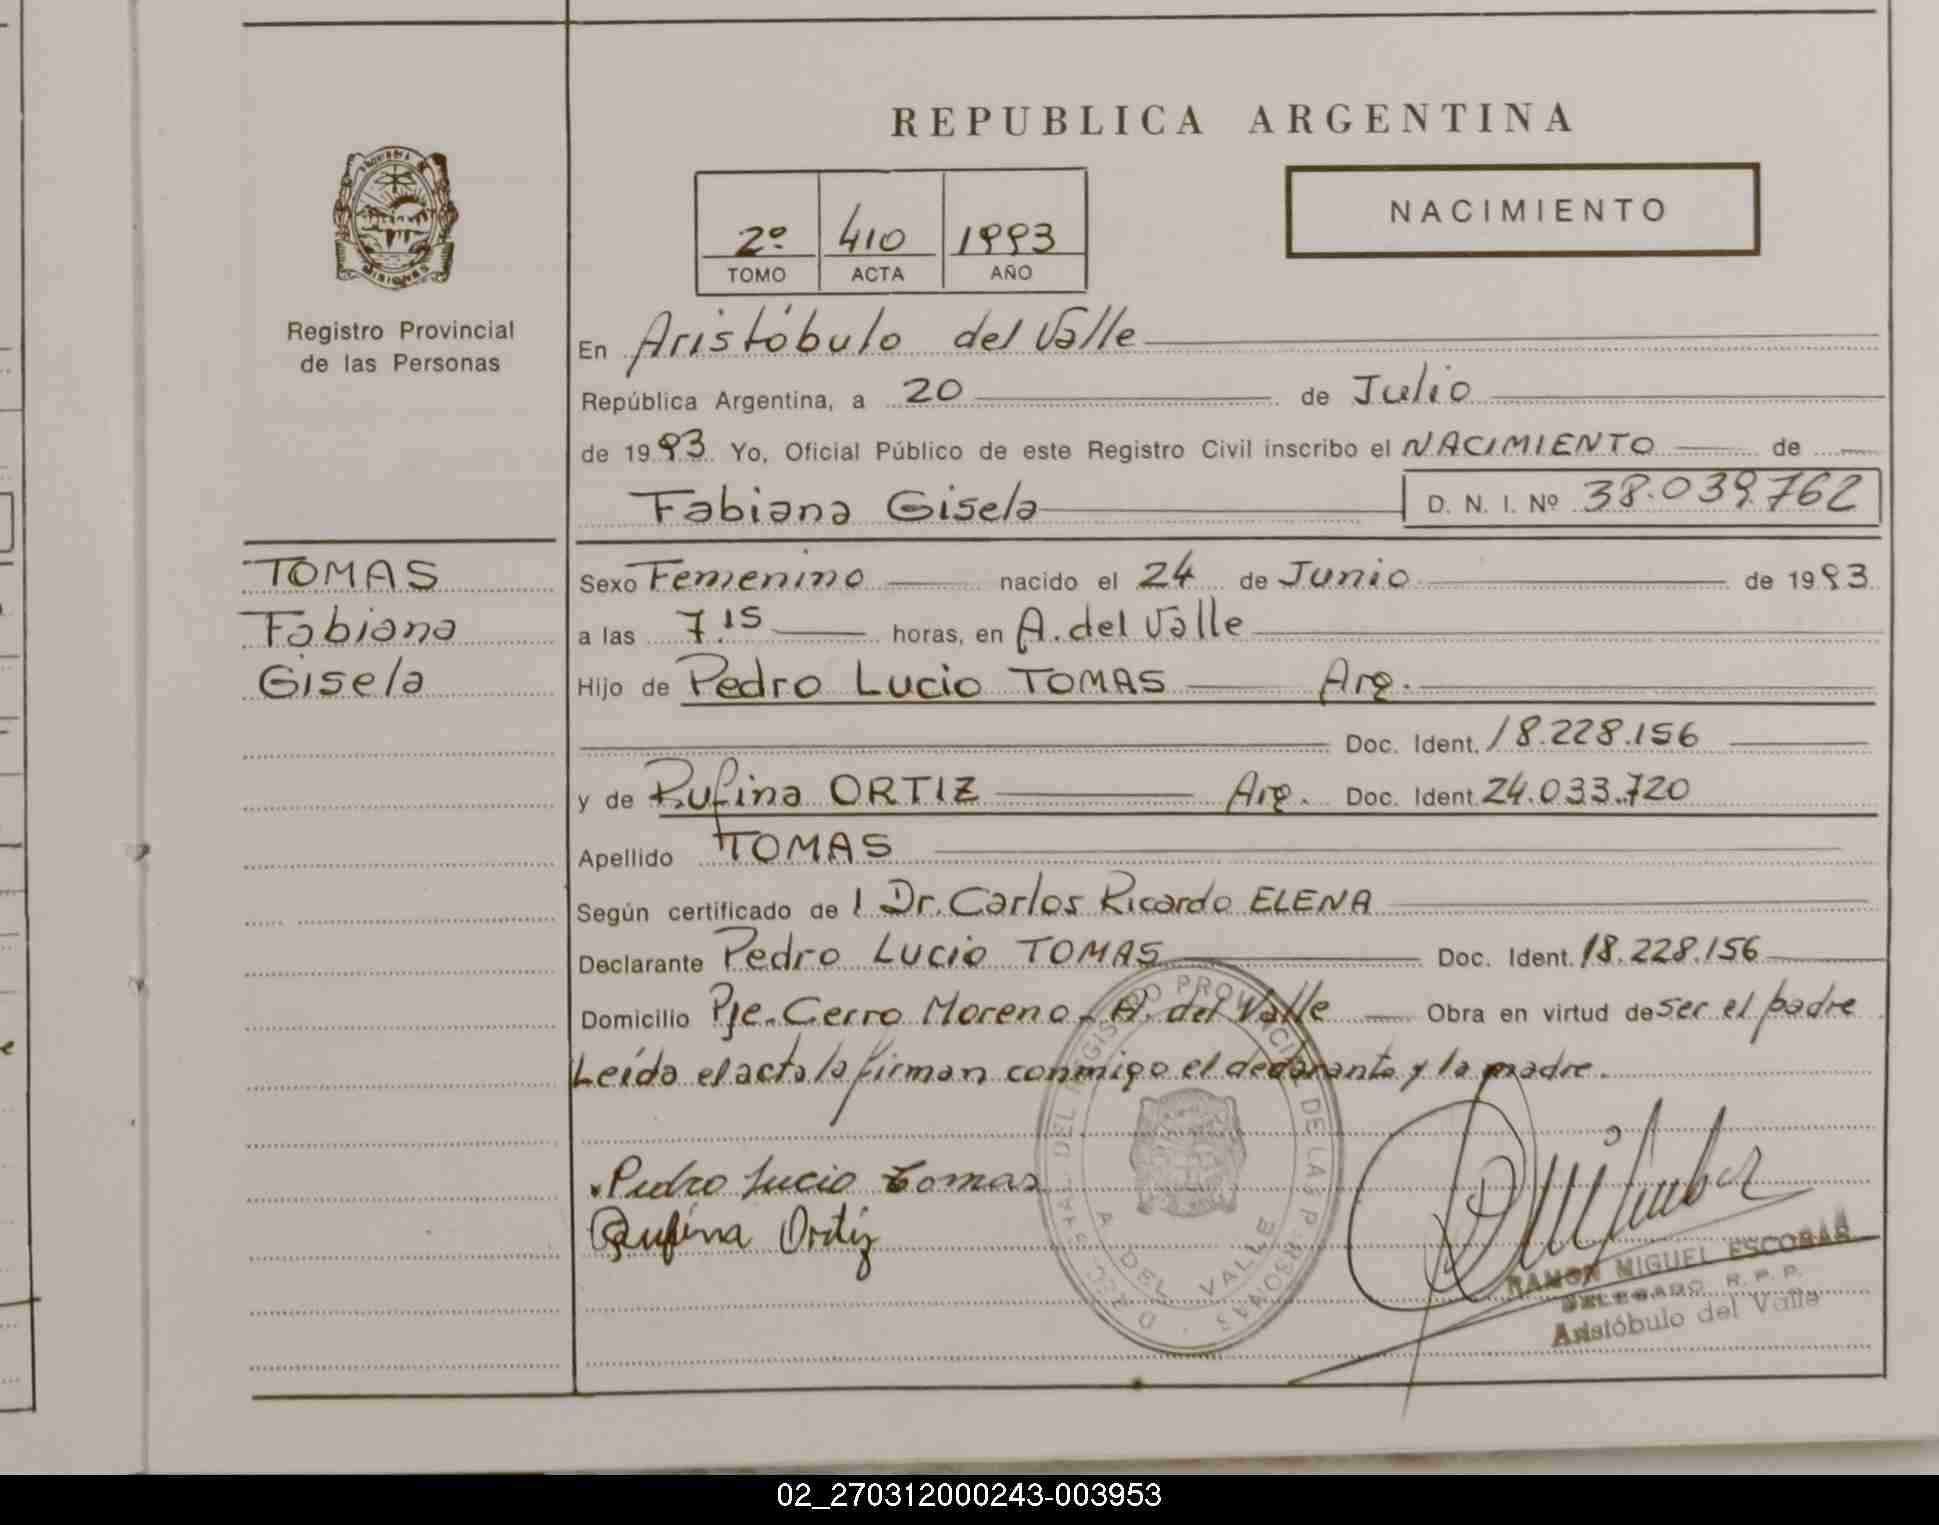 REPUBLICA ARGENTINA
NACIMIENTO
2º 410 1993
TOMO ACTA AÑO
Registro Provincial
de las Personas
MISIONES
En Aristóbulo del Valle
República Argentina, a 20 de Julio
de 1993 Yo, Oficial Público de este Registro Civil inscribo el NACIMIENTO de
Fabiana Gisela D. N. I. Nº 38.039.762
TOMAS
Fabiana
Gisela
Sexo Femenino nacido el 24 de Junio de 1993
a las 7.15 horas, en A. del Valle
Hijo de Pedro Lucio TOMAS Arg.
Doc. Ident. 18.228.156
y de Rufina ORTIZ Arg. Doc. Ident. 24.033.720
Apellido TOMAS
Según certificado de l Dr. Carlos Ricardo ELENA
Declarante Pedro Lucio TOMAS Doc. Ident. 18.228.156
Domicilio Pje. Cerro Moreno - A. del Valle Obra en virtud de ser el padre
Leída el acta la firman conmigo el declarante y la madre.
Pedro Lucio Tomas
Rufina Ortiz
REGISTRO PROVINCIAL DE LAS PERSONAS
A DEL VALLE
RAMON MIGUEL ESCOBAR
DELEGADO R. P. P.
Aristóbulo del Valle
02_270312000243-003953